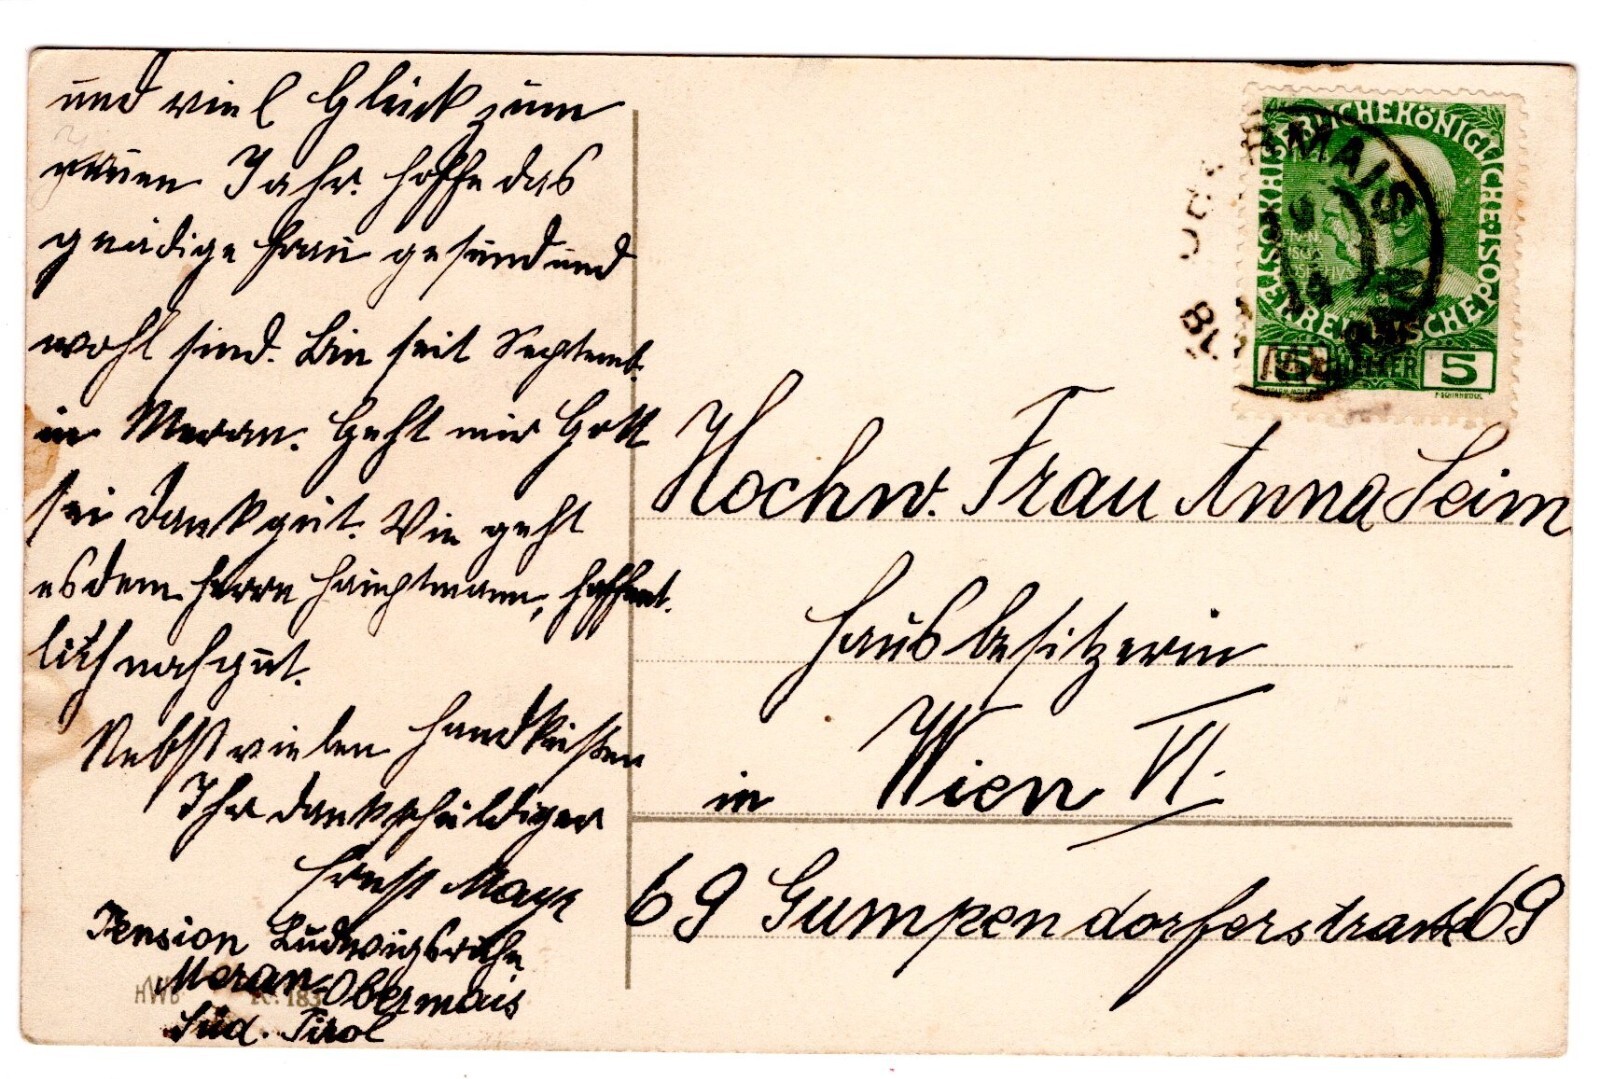 und viel Glück zum
neuen Jahr. hoffe das
gnädige Frau gesund und
wohl sind. Bin seit Septemb.
in Meran. Geht mir Gott
sei dank gut. Wie geht
es dem Herrn Hauptmann, hoffent.
lich noch gut.
Nebst vielen Handküssen
Ihr dankschuldiger
Ernst Mayr
Pension Ludwigsruhe
Meran-Obermais
Süd. Tirol
HWB
183
KAISERLICHEKÖNIGLICHE
ÖSTERREICHISCHE POST
FRAN
IOSEPHVS
5 HELLER 5
OBERMAIS
Hochw. Frau Anna Seim
Hausbesitzerin
in Wien VI.
69 Gumpendorferstrasse 69